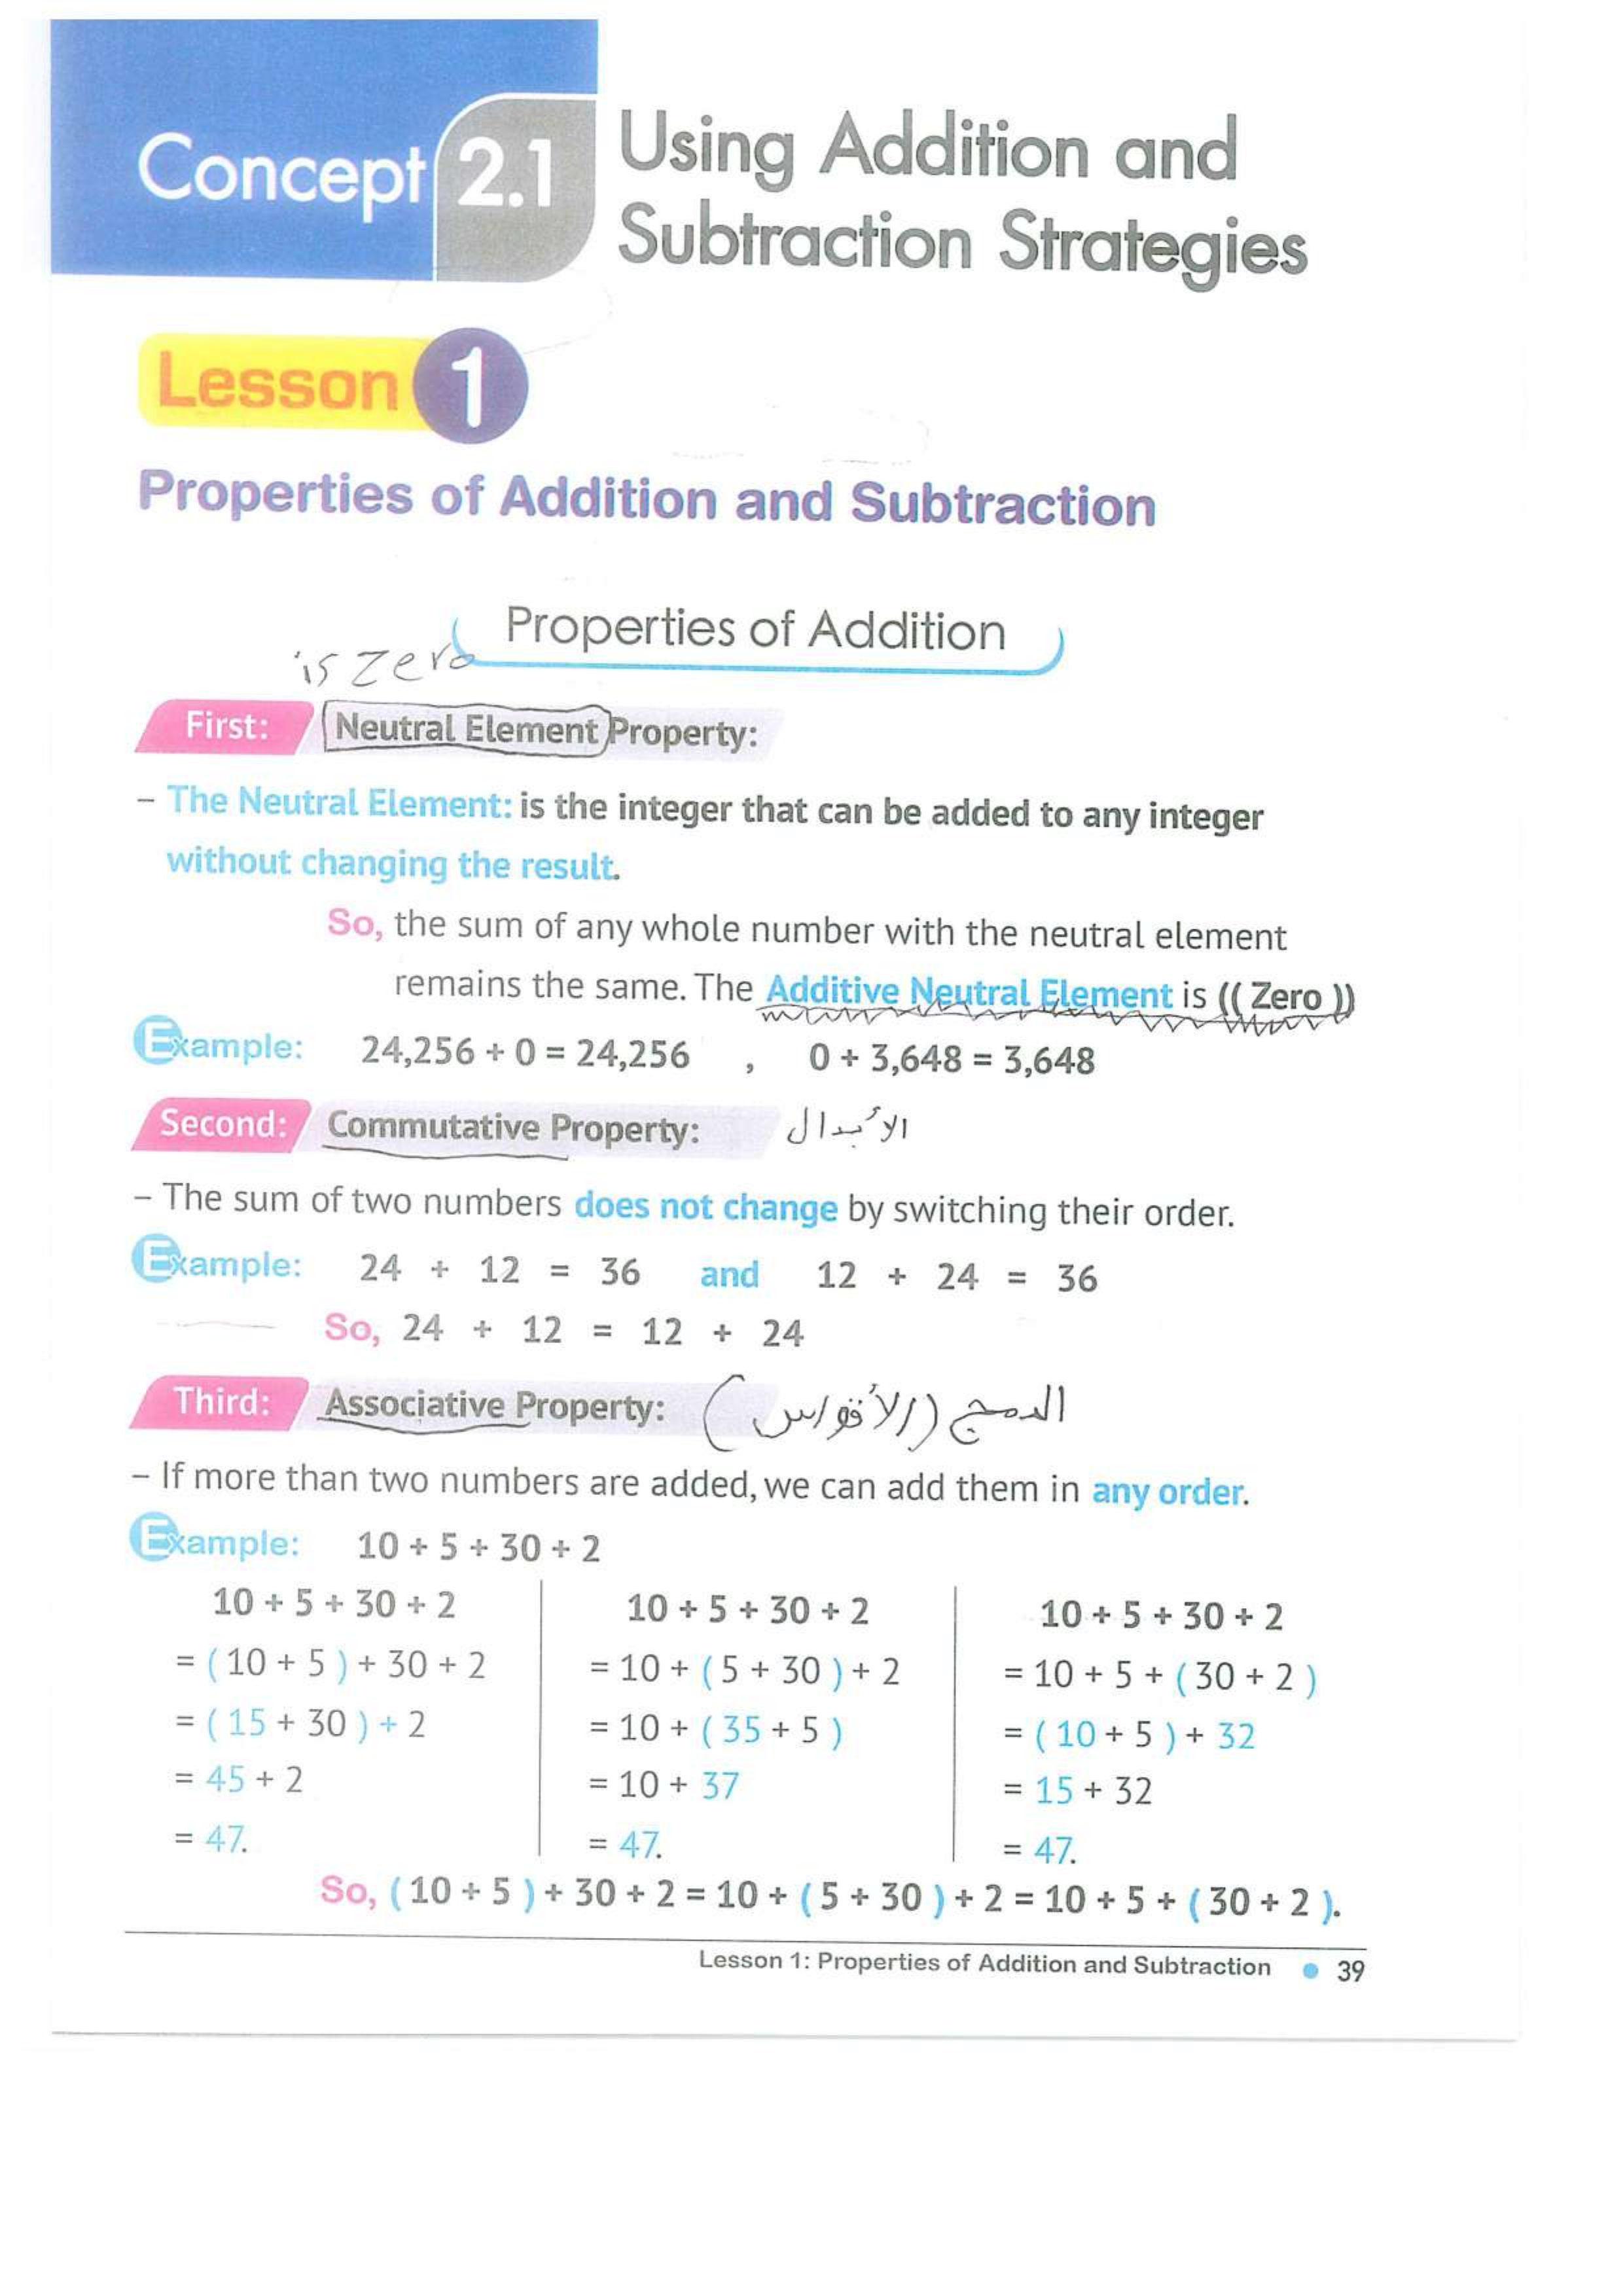 Concept 2.1
Using Addition and
Subtraction Strategies
Lesson 1
Properties of Addition and Subtraction
Properties of Addition
is zero
First: Neutral Element Property:
– The Neutral Element: is the integer that can be added to any integer
without changing the result.
So, the sum of any whole number with the neutral element
remains the same. The Additive Neutral Element is (( Zero ))
Example: 24,256 + 0 = 24,256 , 0 + 3,648 = 3,648
Second: Commutative Property: الأبدال
– The sum of two numbers does not change by switching their order.
Example: 24 + 12 = 36 and 12 + 24 = 36
So, 24 + 12 = 12 + 24
Third: Associative Property: الدمج (الأقواس)
– If more than two numbers are added, we can add them in any order.
Example: 10 + 5 + 30 + 2
10 + 5 + 30 + 2
= ( 10 + 5 ) + 30 + 2
= ( 15 + 30 ) + 2
= 45 + 2
= 47.
10 + 5 + 30 + 2
= 10 + ( 5 + 30 ) + 2
= 10 + ( 35 + 5 )
= 10 + 37
= 47.
10 + 5 + 30 + 2
= 10 + 5 + ( 30 + 2 )
= ( 10 + 5 ) + 32
= 15 + 32
= 47.
So, ( 10 + 5 ) + 30 + 2 = 10 + ( 5 + 30 ) + 2 = 10 + 5 + ( 30 + 2 ).
Lesson 1: Properties of Addition and Subtraction • 39